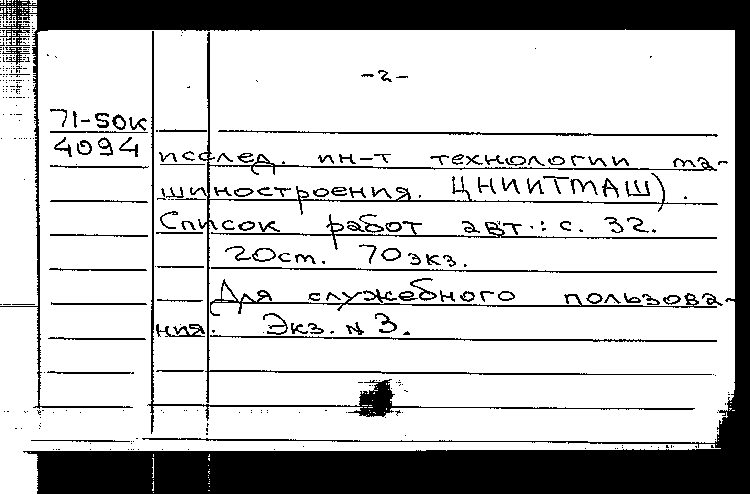 -2-
71-50к
4094 исслед. ин-т технологии ма-
шиностроения. ЦНИИТМАШ).
Список работ авт.: с. 32.
20см. 70экз.
Для служебного пользова-
ния. Экз. N 3.